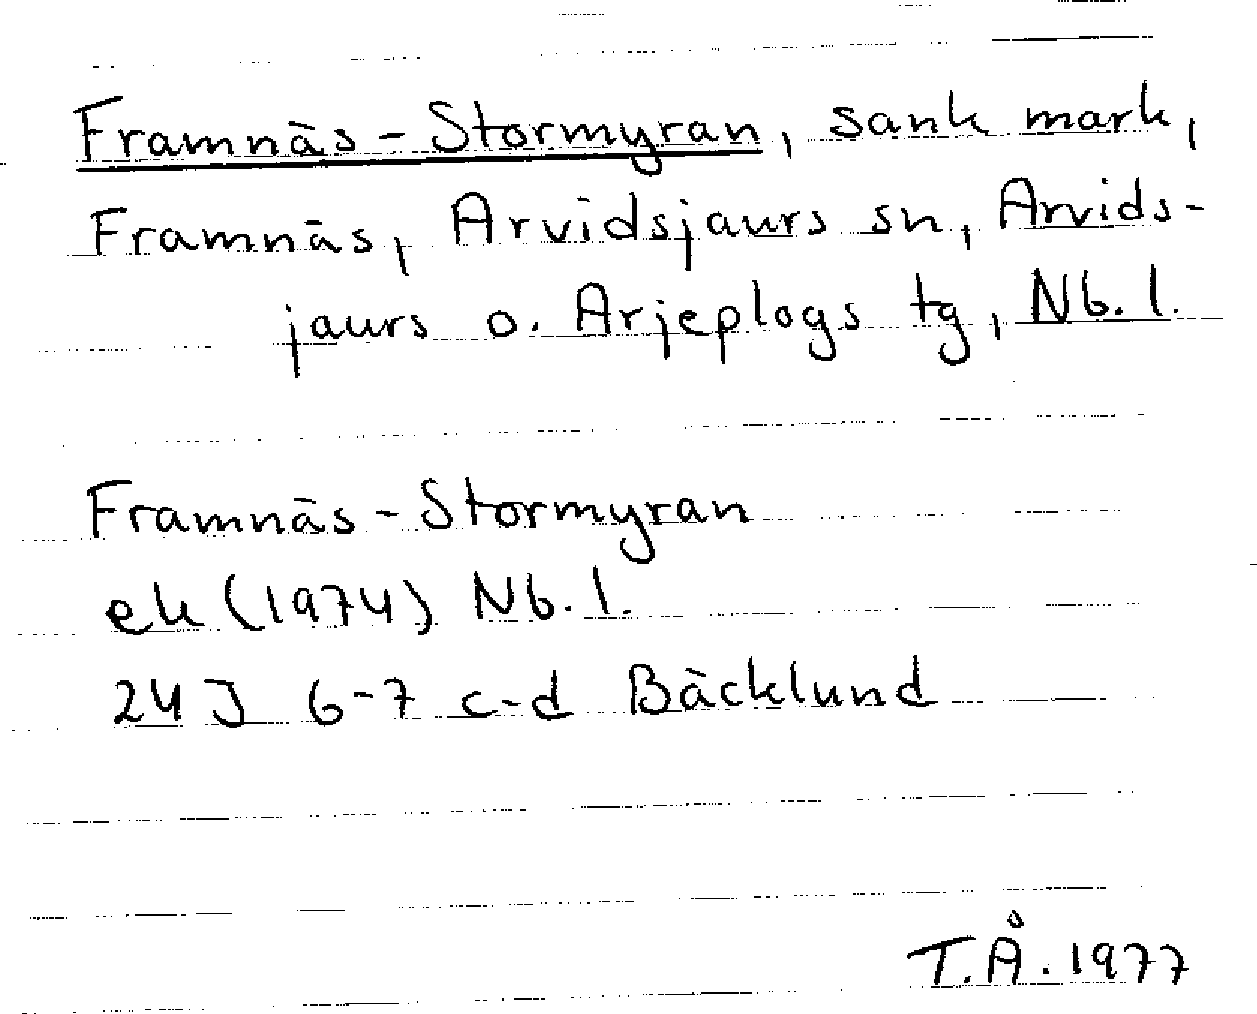 Framnäs-Stormyran, sank mark,
Framnäs, Arvidsjaurs sn, Arvids-
jaurs o. Arjeplogs tg, Nb. l.
Framnäs-Stormyran
ek (1974) Nb. l.
24 J 6-7 c-d Bäcklund
T.Å. 1977